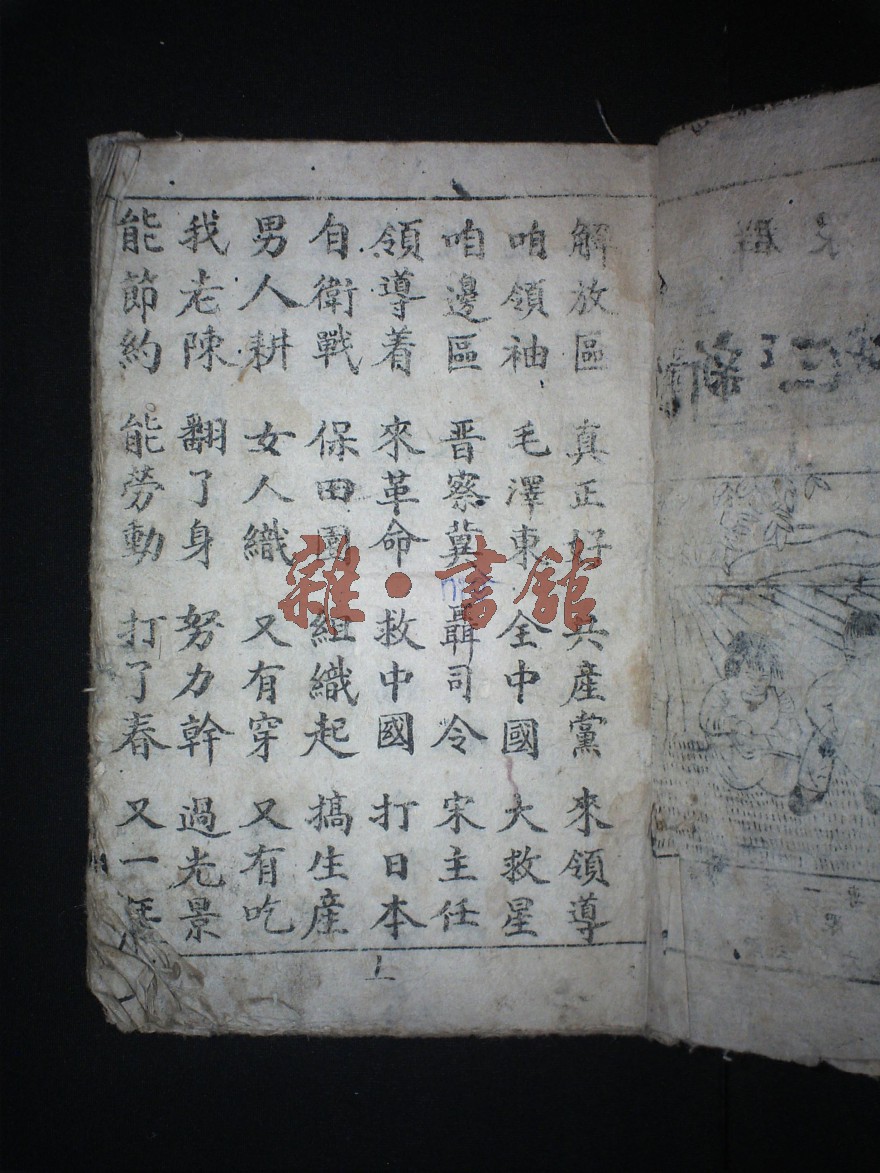 解放區 真正好 共產黨 來領導
咱領袖 毛澤東 全中國 大救星
咱邊區 晋察冀 聶司令 宋主任
領導着 來革命 救中國 打日本
自衛戰 保田園 組織起 搞生産
男人耕 女人織 又有穿 又有吃
我老陳 翻了身 努力幹 過光景
能節約 能勞動 打了春 又一年
雜·書館